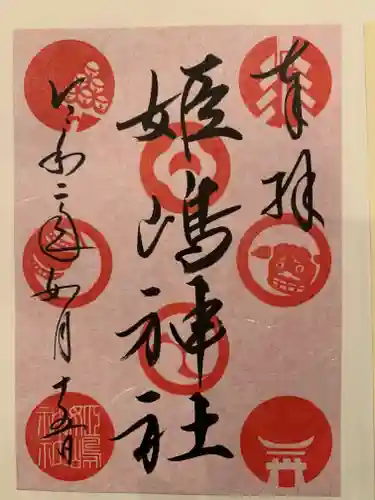 奉拝
姫嶋神社
令和二年如月十五日
姫嶋神社